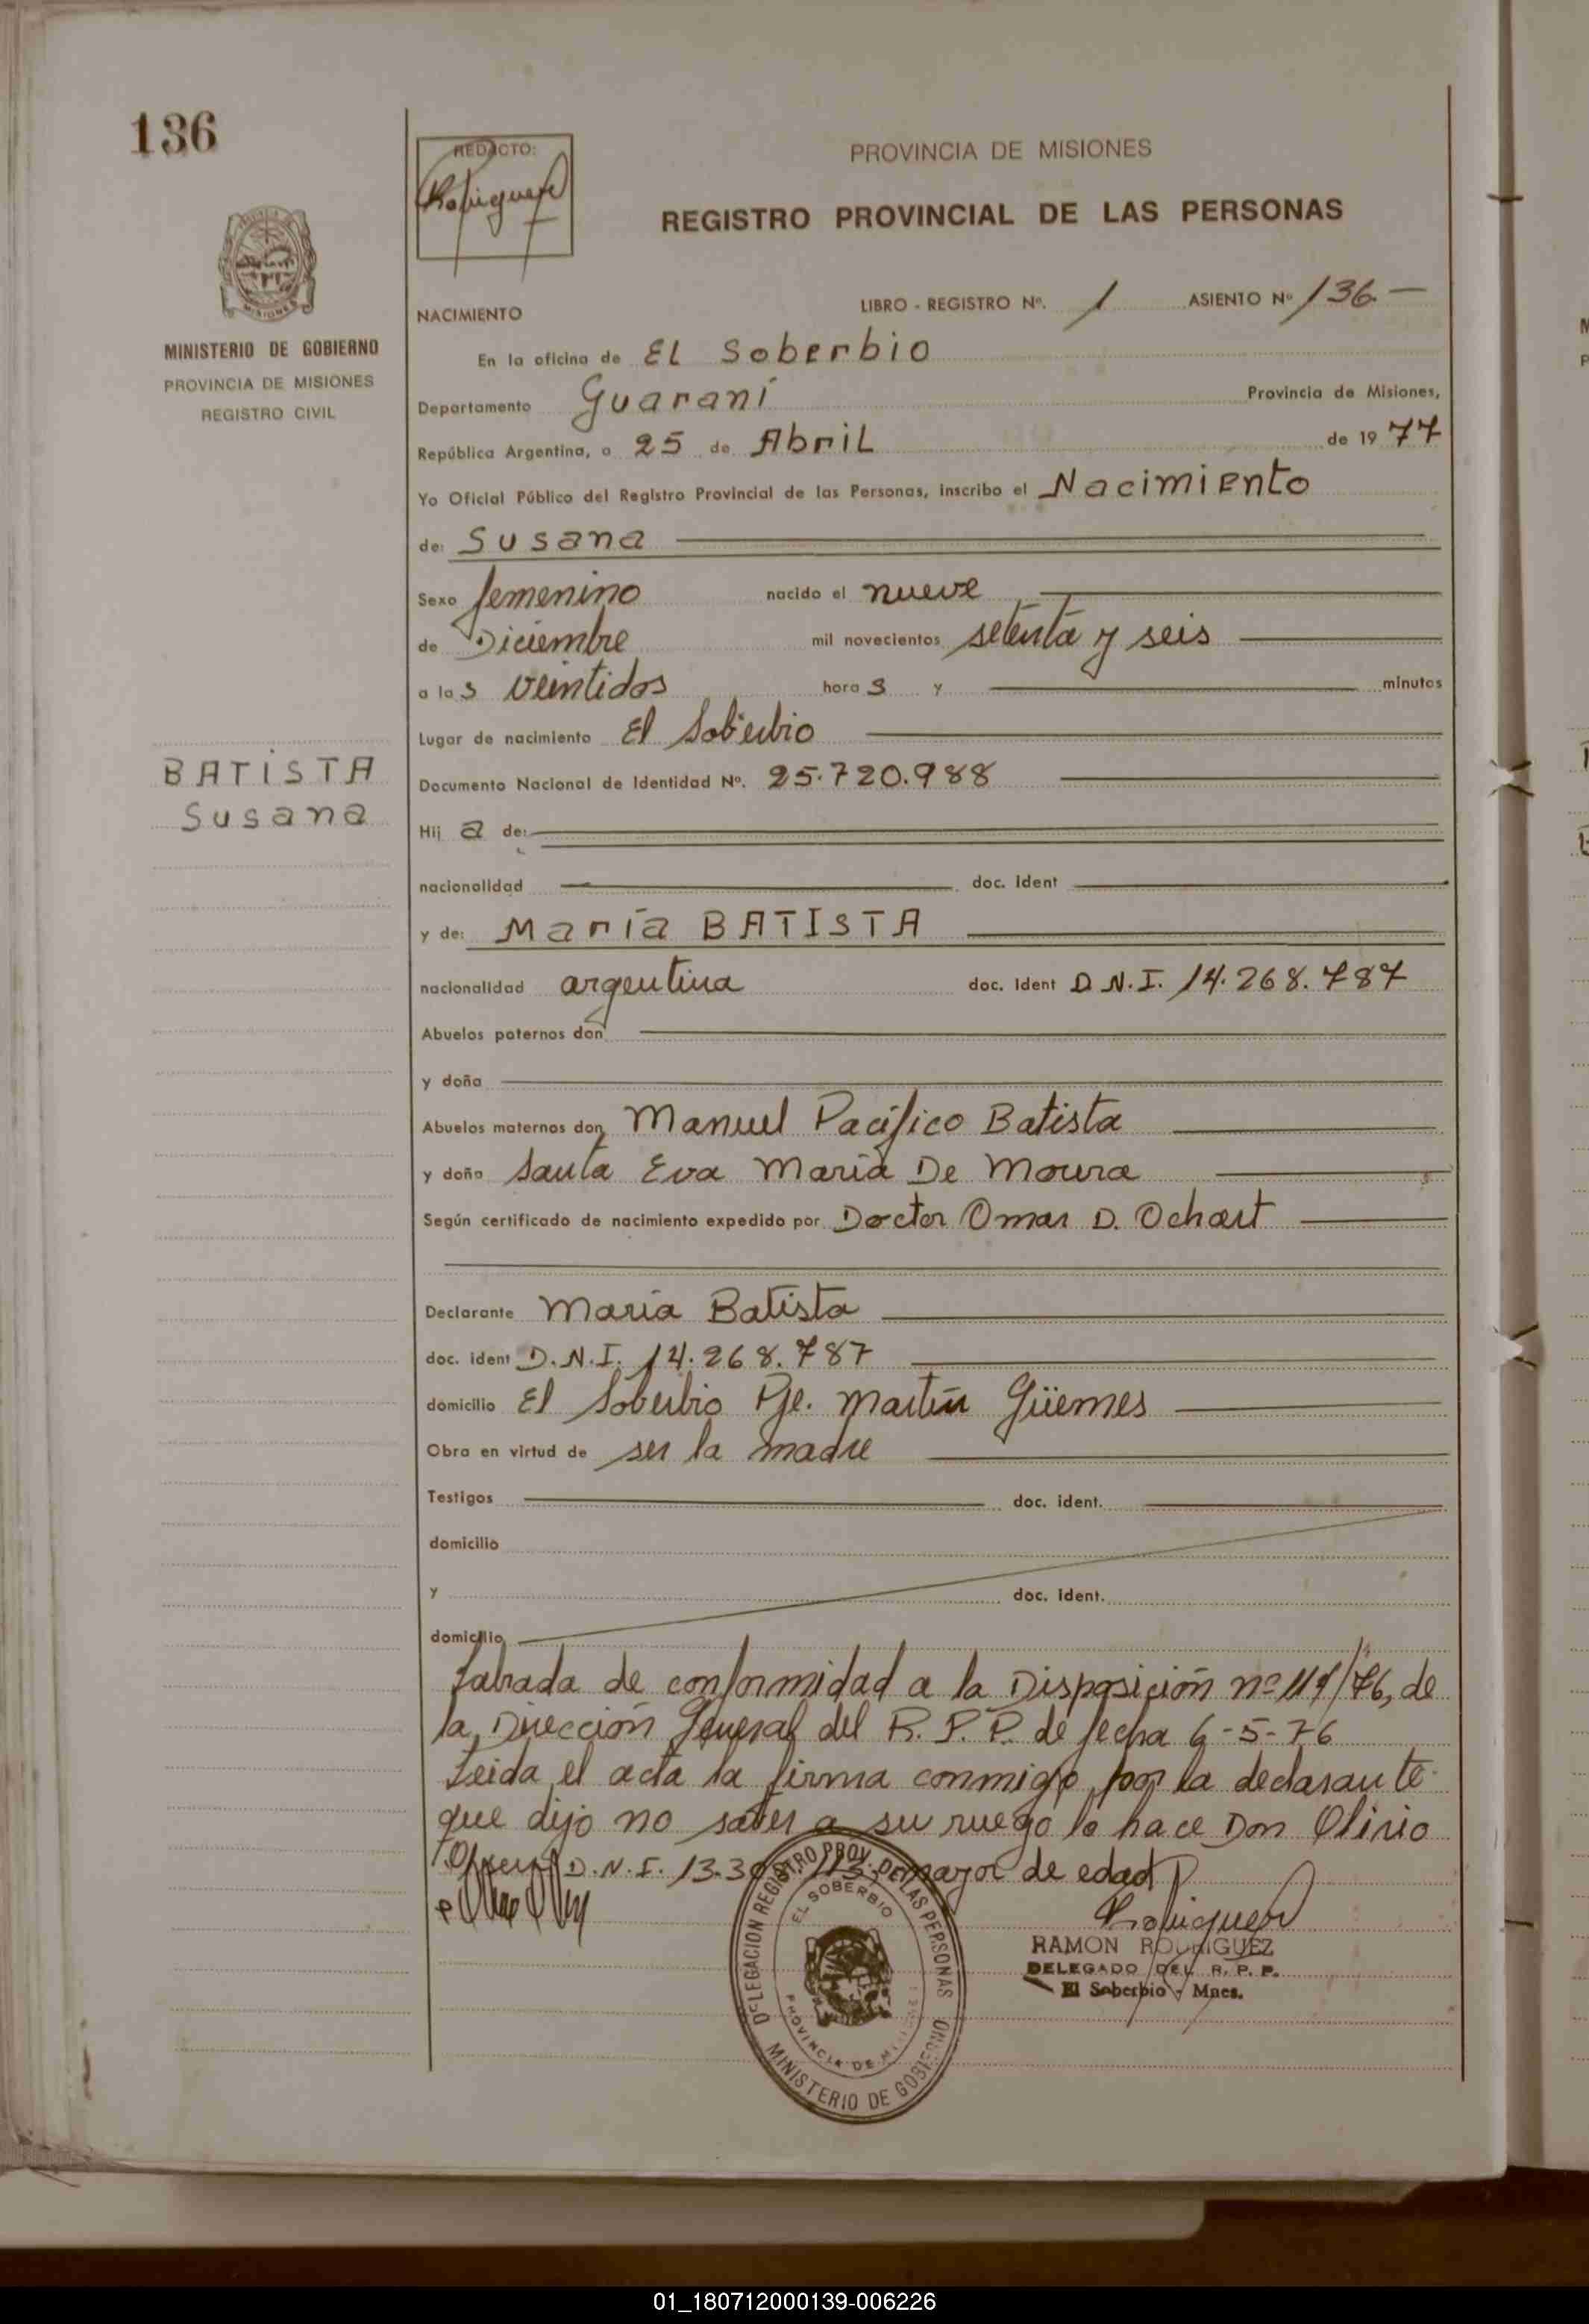 136
REDACTO:
PROVINCIA DE MISIONES
REGISTRO PROVINCIAL DE LAS PERSONAS
MISIONES
MINISTERIO DE GOBIERNO
PROVINCIA DE MISIONES
REGISTRO CIVIL
NACIMIENTO LIBRO - REGISTRO Nº. 1 ASIENTO Nº 136.—
En la oficina de EL Soberbio
Departamento Guaraní Provincia de Misiones,
República Argentina, a 25 de Abril de 19 77
Yo Oficial Público del Registro Provincial de las Personas, inscribo el Nacimiento
de: Susana
Sexo femenino nacido el nueve
de Diciembre mil novecientos setenta y seis
a las veintidos horas y minutos
Lugar de nacimiento El Soberbio
BATISTA
Susana
Documento Nacional de Identidad Nº. 25.720.988
Hija de:
nacionalidad doc. ident
y de: María BATISTA
nacionalidad argentina doc. ident D.N.I. 14.268.787
Abuelos paternos don
y doña
Abuelos maternos don Manuel Pacífico Batista
y doña Santa Eva María De Moura
Según certificado de nacimiento expedido por Doctor Omar D. Ochart
Declarante María Batista
doc. ident D.N.I. 14.268.787
domicilio El Soberbio Pje. Martín Güemes
Obra en virtud de ser la madre
Testigos doc. ident.
domicilio
y doc. ident.
domicilio
Labrada de conformidad a la Disposición nº /76, de
la Dirección General del R.P.P. de fecha 6-5-76
Leida el acta la firma conmigo por la declarante
que dijo no saber a su ruego lo hace Don Olirio
D.N.I. 13.3 mayor de edad
Rodriguez
RAMON RODRIGUEZ
DELEGADO DEL R. P. P.
El Soberbio - Mnes.
DELEGACION REGISTRO PROV. DE LAS PERSONAS
EL SOBERBIO
PROVINCIA DE MISIONES
MINISTERIO DE GOBIERNO
01_180712000139-006226